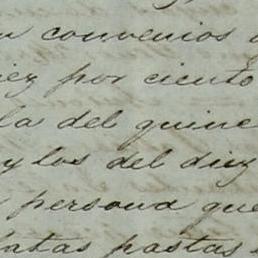 n convenios
iez por ciento
la del quince
y los del diez
persona que
latas pastas